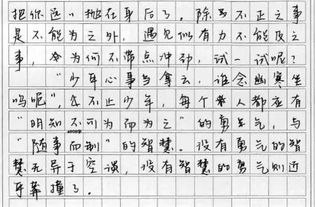 把你远"抛在身后了。除去不正之事
是不能为之外，遇见似有力不能及之
事，为何不带点冲劲，试一试呢？
"少年心事当拿云，谁念幽寒坐
呜呢"，岂止少年，每个人都应有
"明知不可为而为之"的勇气，与
"随事而制"的智慧。没有勇气的智
慧无异于空谈，没有智慧的勇气则近
乎莽撞了。